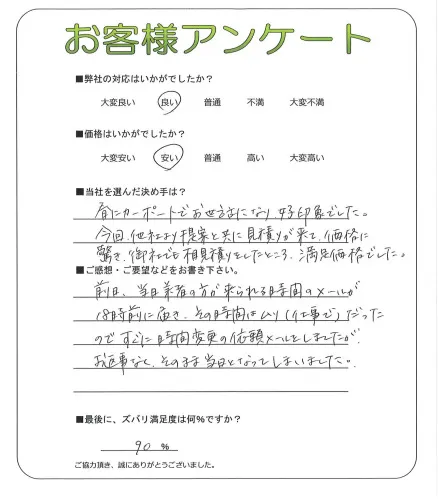 お客様アンケート
■弊社の対応はいかがでしたか？
大変良い 良い 普通 不満 大変不満
■価格はいかがでしたか？
大変安い 安い 普通 高い 大変高い
■当社を選んだ決め手は？
前にカーポートでお世話になり 好印象でした。
今回、他社より提案と共に見積りが来て、価格に
驚き、御社でも相見積りをしたところ、満足価格でした。
■ご感想・ご要望などをお書き下さい。
前日、当日業者の方が来られる時間のメールが
18時前に届き、その時間はムリ（仕事で）だった
ので すぐに時間変更の依頼メールをしましたが、
お返事なく、そのまま当日となってしまいました。
■最後に、ズバリ満足度は何％ですか？
90 ％
ご協力頂き、誠にありがとうございました。